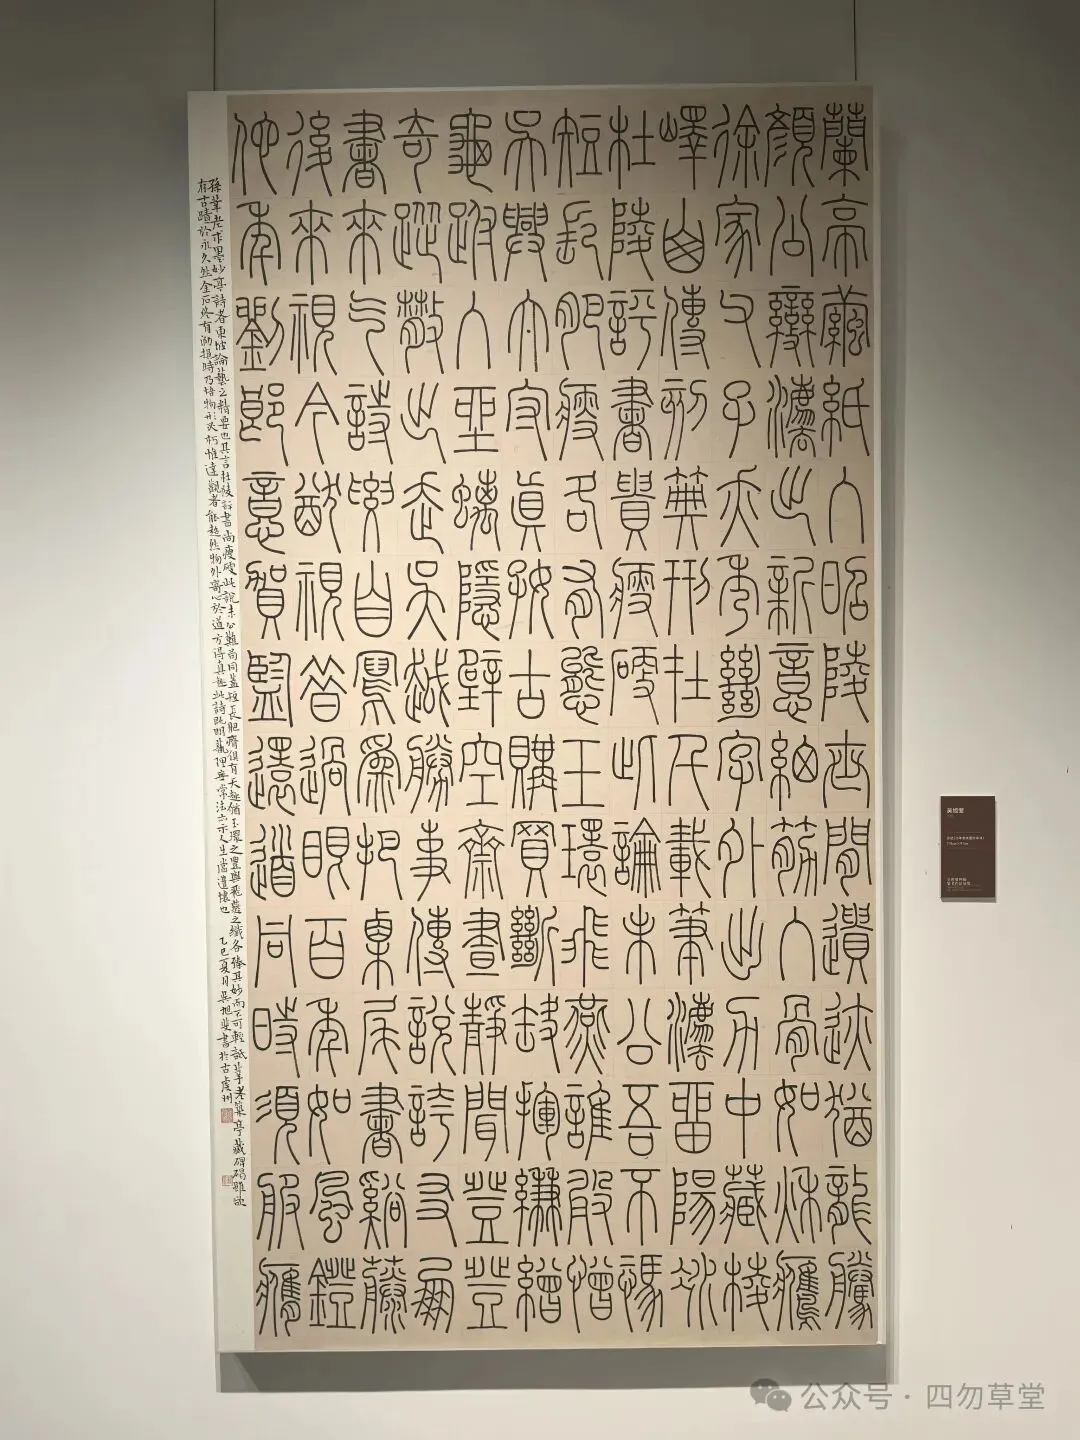 蘭亭繭紙入昭陵世閒遺迹猶龍騰
顏公變灋出新意細筋入骨如秋鷹
徐家父子亦秀絕字外出力中藏棱
嶧山傳刻典刑在千載筆灋留陽冰
杜陵評書貴瘦硬此論未公吾不憑
短長肥瘦各有態玉環飛燕誰敢憎
吳興太守真好古購買斷缺揮縑繒
龜趺入坐螭隱壁空齋晝靜聞登登
奇蹤散出走吳越勝事傳說誇友朋
書來乞詩要自寫為把栗尾書谿藤
後來視今猷視昔過眼百年如風鐙
他年劉郎意賀監還道同時須服膺
孫莘老求墨妙亭詩者東坡論藝之精要也其言杜陵評書尚瘦硬此說未公難苟同蓋短長肥瘠俱有天趣猶玉環之豐與飛燕之纖各臻其妙而不可輕詆莘老築亭藏碑碣雖欲
有古蹟於永久然金石終有泐損時乃悟物形必朽惟達觀者能超然物外寄心於道方得真趣此詩既明藝理無常法亦示人生當遣懷也 乙巳夏月吳旭斐書於古虔州
公众号 · 四勿草堂